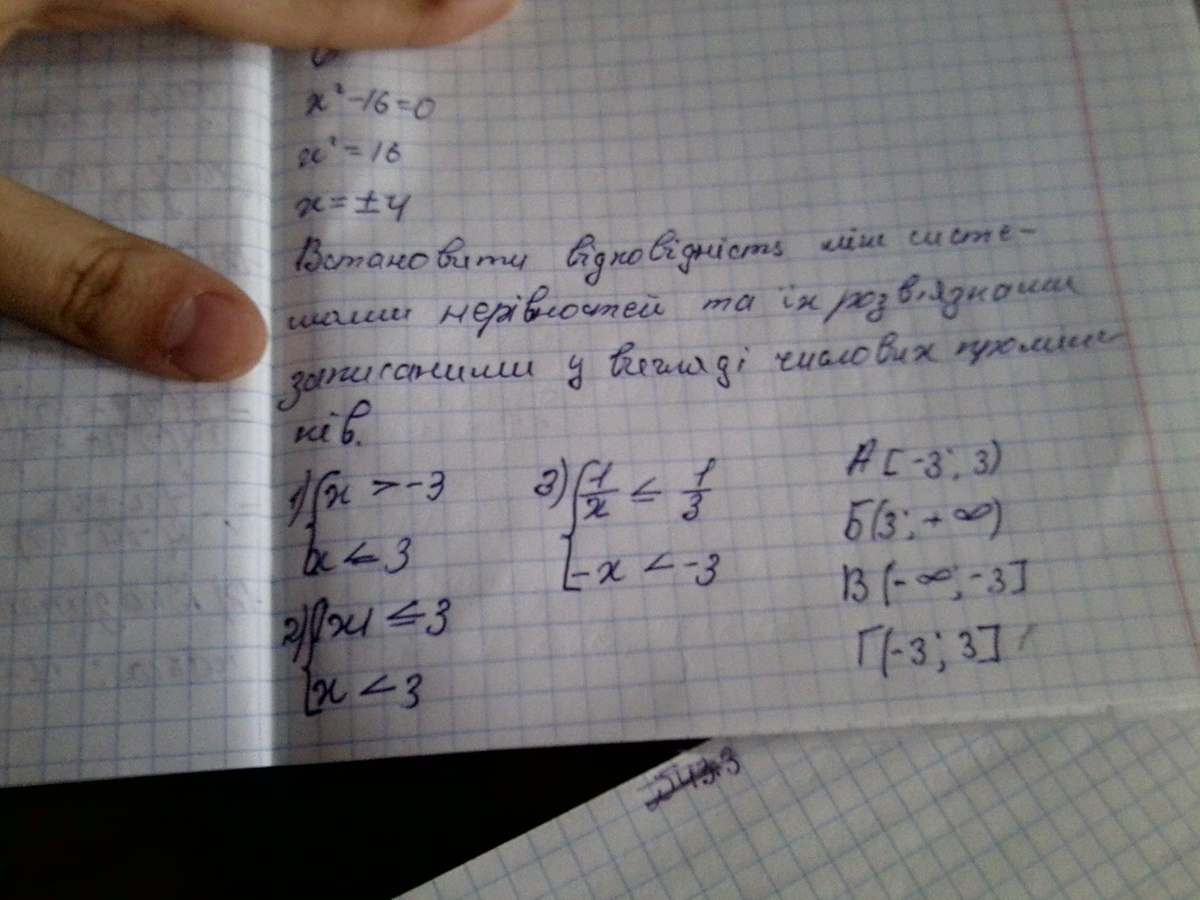 x² - 16 = 0
x² = 16
x = ± 4
Встановити відповідність між систе-
мами нерівностей та їх розв'язками
записаними у вигляді числових проміж-
нів.
1) { x > -3 3) { 1/x ≤ 1/3 А [-3; 3)
x ≤ 3 -x < -3 Б (3; +∞)
2) { |x| ≤ 3 В (-∞; -3]
x < 3 Г (-3; 3]